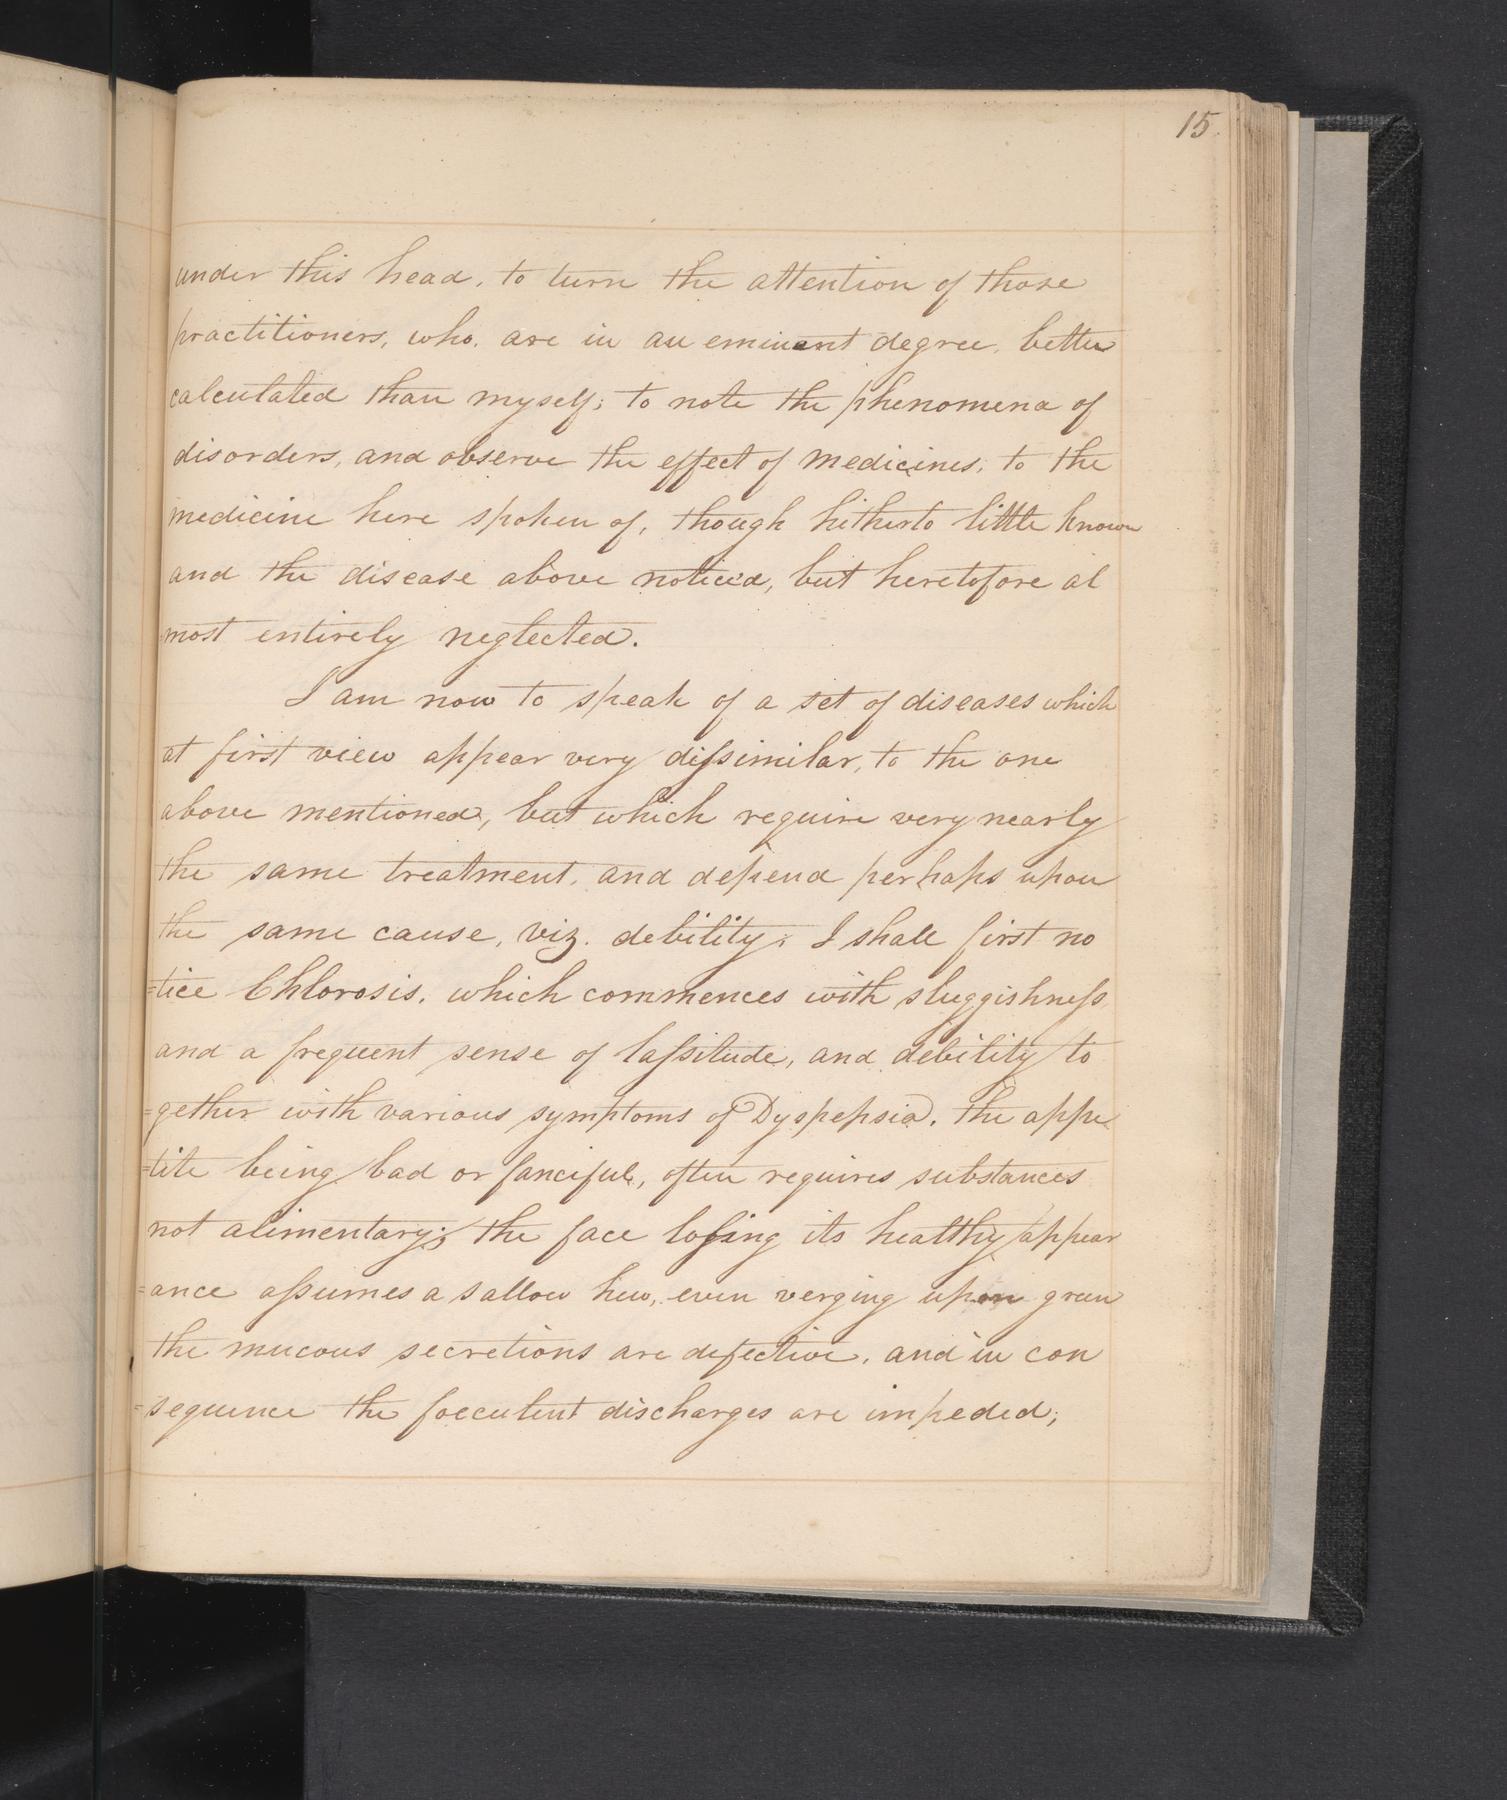 15
under this head, to turn the attention of those
practitioners, who, are in an eminent degree, better
calculated than myself; to note the phenomena of
disorders, and observe the effect of medicines, to the
medicine here spoken of, though hitherto little known
and the disease above noticed, but heretofore al
most entirely neglected.
I am now to speak of a set of diseases which
at first view appear very dissimilar, to the one
above mentioned, but which require very nearly
the same treatment, and depend perhaps upon
the same cause, viz. debility; I shall first no
=tice Chlorosis, which commences with sluggishness,
and a frequent sense of lassitude, and debility to
=gether with various symptoms of Dyspepsia. The appe
=tite being bad or fanciful, often requires substances
not alimentary; the face lossing its healthy appear
=ance assumes a sallow hew, even verging upon green
the mucous secretions are defective, and in con
=sequence the foeculent discharges are impeded;